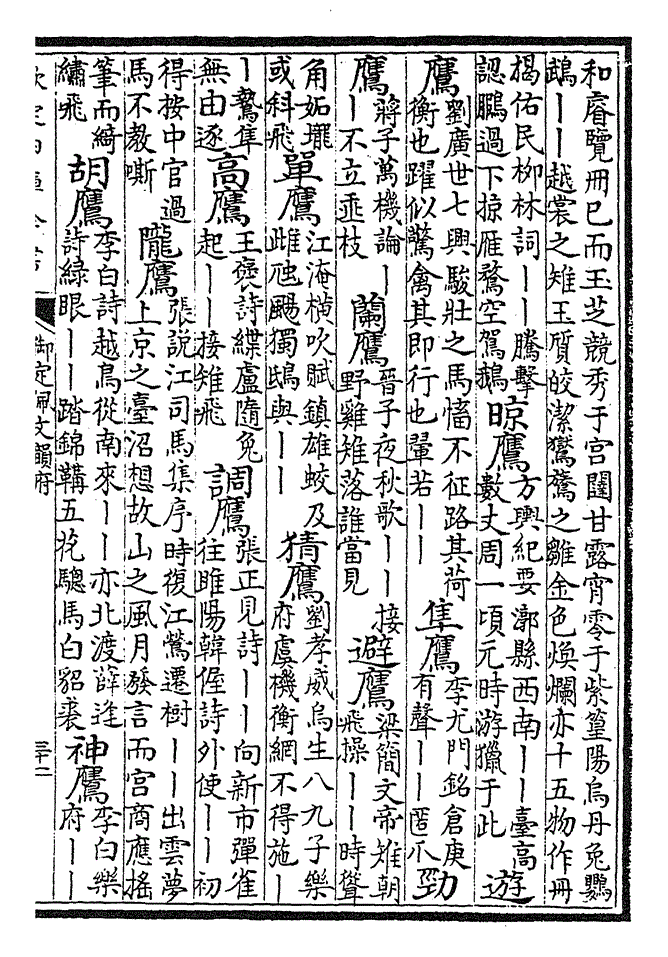 和睿覽冊已而玉芝競秀于宫闥甘露宵零于紫篁陽烏丹兔鸚
鵡｜｜越裳之雉玉質皎潔鸑鷟之雛金色煥爛亦十五物作冊
揭佑民柳林詞｜｜騰擊
認鵬過下掠雁鶩空駕鵝
晾鷹
方輿紀要漷縣西南｜｜臺高
數丈周一頃元時游獵于此
遊
鷹
劉廣世七興駿壯之馬慉不征路其荷
衡也躍似驚禽其即行也翬若｜｜
隼鷹
李尤門銘倉庚
有聲｜｜匿爪
勁
鷹
蔣子萬機論｜
｜不立垂枝
蘭鷹
晉子夜秋歌｜｜接
野雞雉落誰當見
避鷹
梁簡文帝雉朝
飛操｜｜時聳
角妬壠
或科飛
單鷹
江淹橫吹賦鎮雄蛟及
雌虺颺獨鴟與｜｜
猜鷹
劉孝威烏生八九子樂
府虞機衡網不得施｜
｜鷙隼
無由逐
高鷹
王褒詩緤盧隨兔
起｜｜接雉飛
調鷹
張正見詩｜｜向新市彈雀
往睢陽韓偓詩外使｜｜初
得按中官過
馬不教嘶
隴鷹
張說江司馬集序時復江鶯遷樹｜｜出雲夢
上京之臺沼想故山之風月發言而宫商應搖
筆而綺
繡飛
胡鷹
李白詩越鳥從南來｜｜亦北渡薛逢
詩綠眼｜｜踏錦鞲五花驄馬白貂裘
神鷹
李白樂
府｜｜
欽定四庫全書
御定佩文韻府